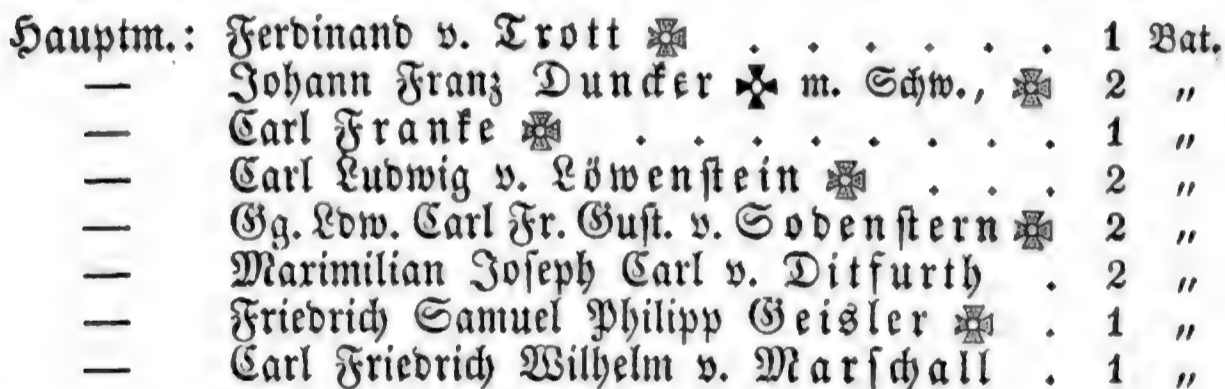 Hauptm.: Ferdinand v. Trott ✠ . . . . . . 1 Bat.
— Johann Franz Duncker ✠ m. Schw., ✠ 2 „
— Carl Franke ✠ . . . . . . . . 1 „
— Carl Ludwig v. Löwenstein ✠ . . . 2 „
— Gg. Ldw. Carl Fr. Gust. v. Sodenstern ✠ 2 „
— Maximilian Joseph Carl v. Ditfurth . 2 „
— Friedrich Samuel Philipp Geisler ✠ . 1 „
— Carl Friedrich Wilhelm v. Marschall . 1 „